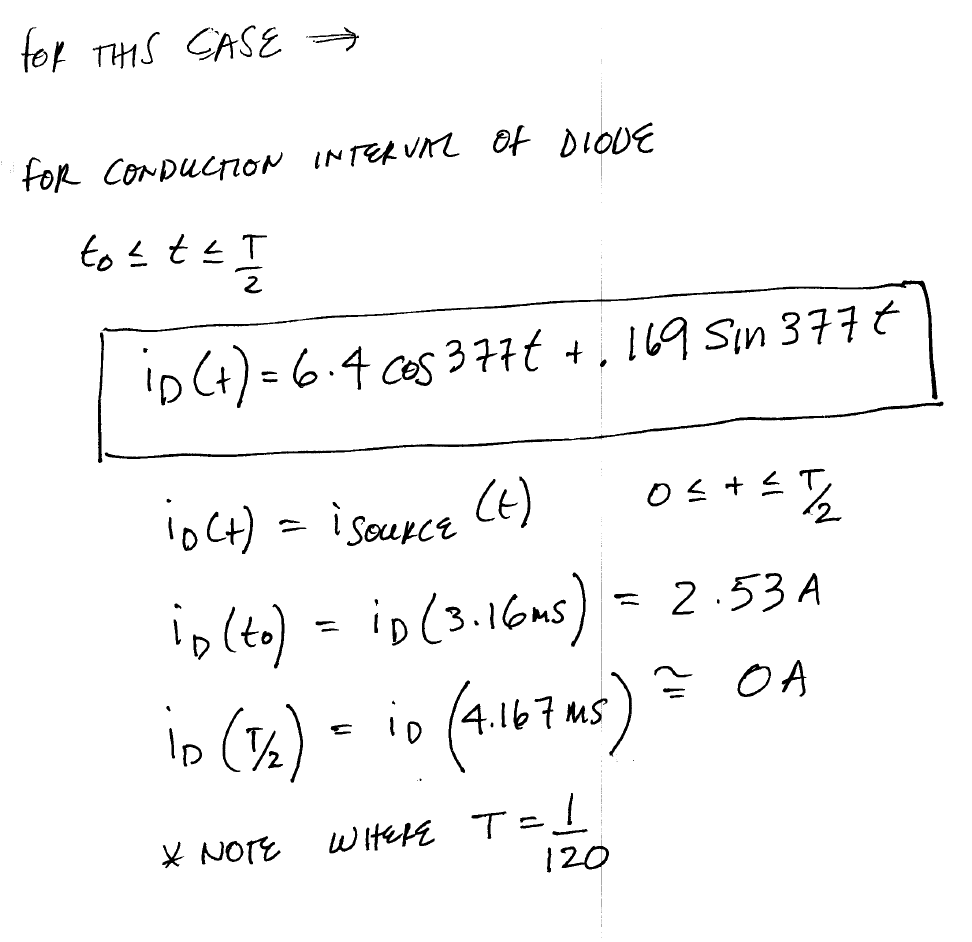 FOR THIS CASE ⇒
FOR CONDUCTION INTERVAL OF DIODE
t₀ ≤ t ≤ T/2
i_D(t) = 6.4 cos 377t + .169 sin 377t
i_D(t) = i_SOURCE(t) 0 ≤ t ≤ T/2
i_D(t₀) = i_D(3.16ms) = 2.53 A
i_D(T/2) = i_D(4.167 ms) ≅ 0 A
* NOTE WHERE T = 1/120